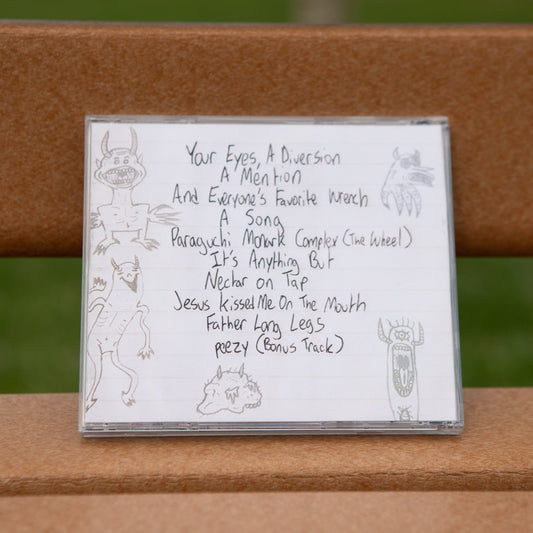 Your Eyes, A Diversion
A Mention
And Everyone's Favorite Wrench
A Song
Paraguchi Monark Complex (The Wheel)
It's Anything But
Nectar on Tap
Jesus Kissed Me On The Mouth
Father Long Legs
poezy (Bonus Track)